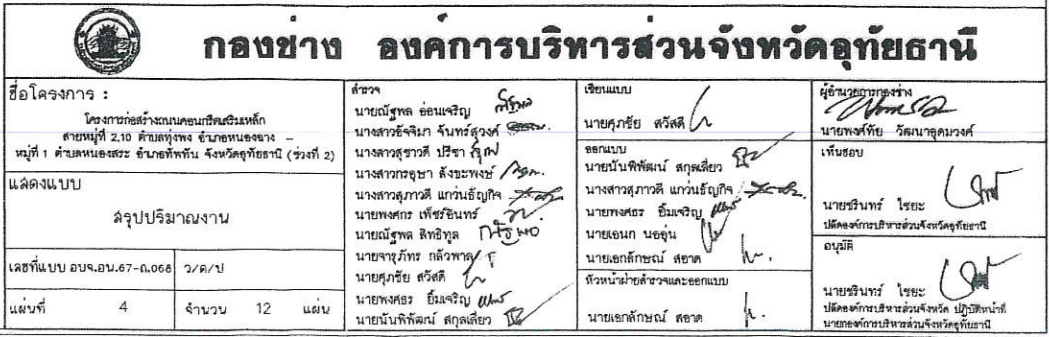 กองช่าง องค์การบริหารส่วนจังหวัดอุทัยธานี
ชื่อโครงการ :
โครงการก่อสร้างถนนคอนกรีตเสริมเหล็ก
สายหมู่ที่ 2,10 ตำบลทุ่งพง อำเภอหนองฉาง –
หมู่ที่ 1 ตำบลหนองสระ อำเภอทัพทัน จังหวัดอุทัยธานี (ช่วงที่ 2)
แสดงแบบ
สรุปปริมาณงาน
เลขที่แบบ อบจ.อน.67-ถ.068
ว/ด/ป
แผ่นที่ 4 จำนวน 12 แผ่น
สำรวจ
นายณัฐพล อ่อนเจริญ
นางสาวอัจจิมา จันทร์สุวงค์
นางสาวสุชาวดี ปรีชา
นางสาวกรอุษา สังขะพงษ์
นางสาวสุภาวดี แกว่นธัญกิจ
นายพงศกร เพ็ชรอินทร์
นายณัฐพล สิทธิทูล
นายจารุภัทร กลัวพาล
นายศุภชัย สวัสดี
นายพงศธร ยิ้มเจริญ
นายนันพิพัฒน์ สกุลเลี่ยว
เขียนแบบ
นายศุภชัย สวัสดี
ออกแบบ
นายนันพิพัฒน์ สกุลเลี่ยว
นางสาวสุภาวดี แกว่นธัญกิจ
นายพงศธร ยิ้มเจริญ
นายเอนก นออุ่น
นายเอกลักษณ์ สอาด
หัวหน้าฝ่ายสำรวจและออกแบบ
นายเอกลักษณ์ สอาด
ผู้อำนวยการกองช่าง
นายพงศ์ทัย วัฒนาอุดมวงศ์
เห็นชอบ
นายชรินทร์ ไชยะ
ปลัดองค์การบริหารส่วนจังหวัดอุทัยธานี
อนุมัติ
นายชรินทร์ ไชยะ
ปลัดองค์การบริหารส่วนจังหวัด ปฏิบัติหน้าที่
นายกองค์การบริหารส่วนจังหวัดอุทัยธานี